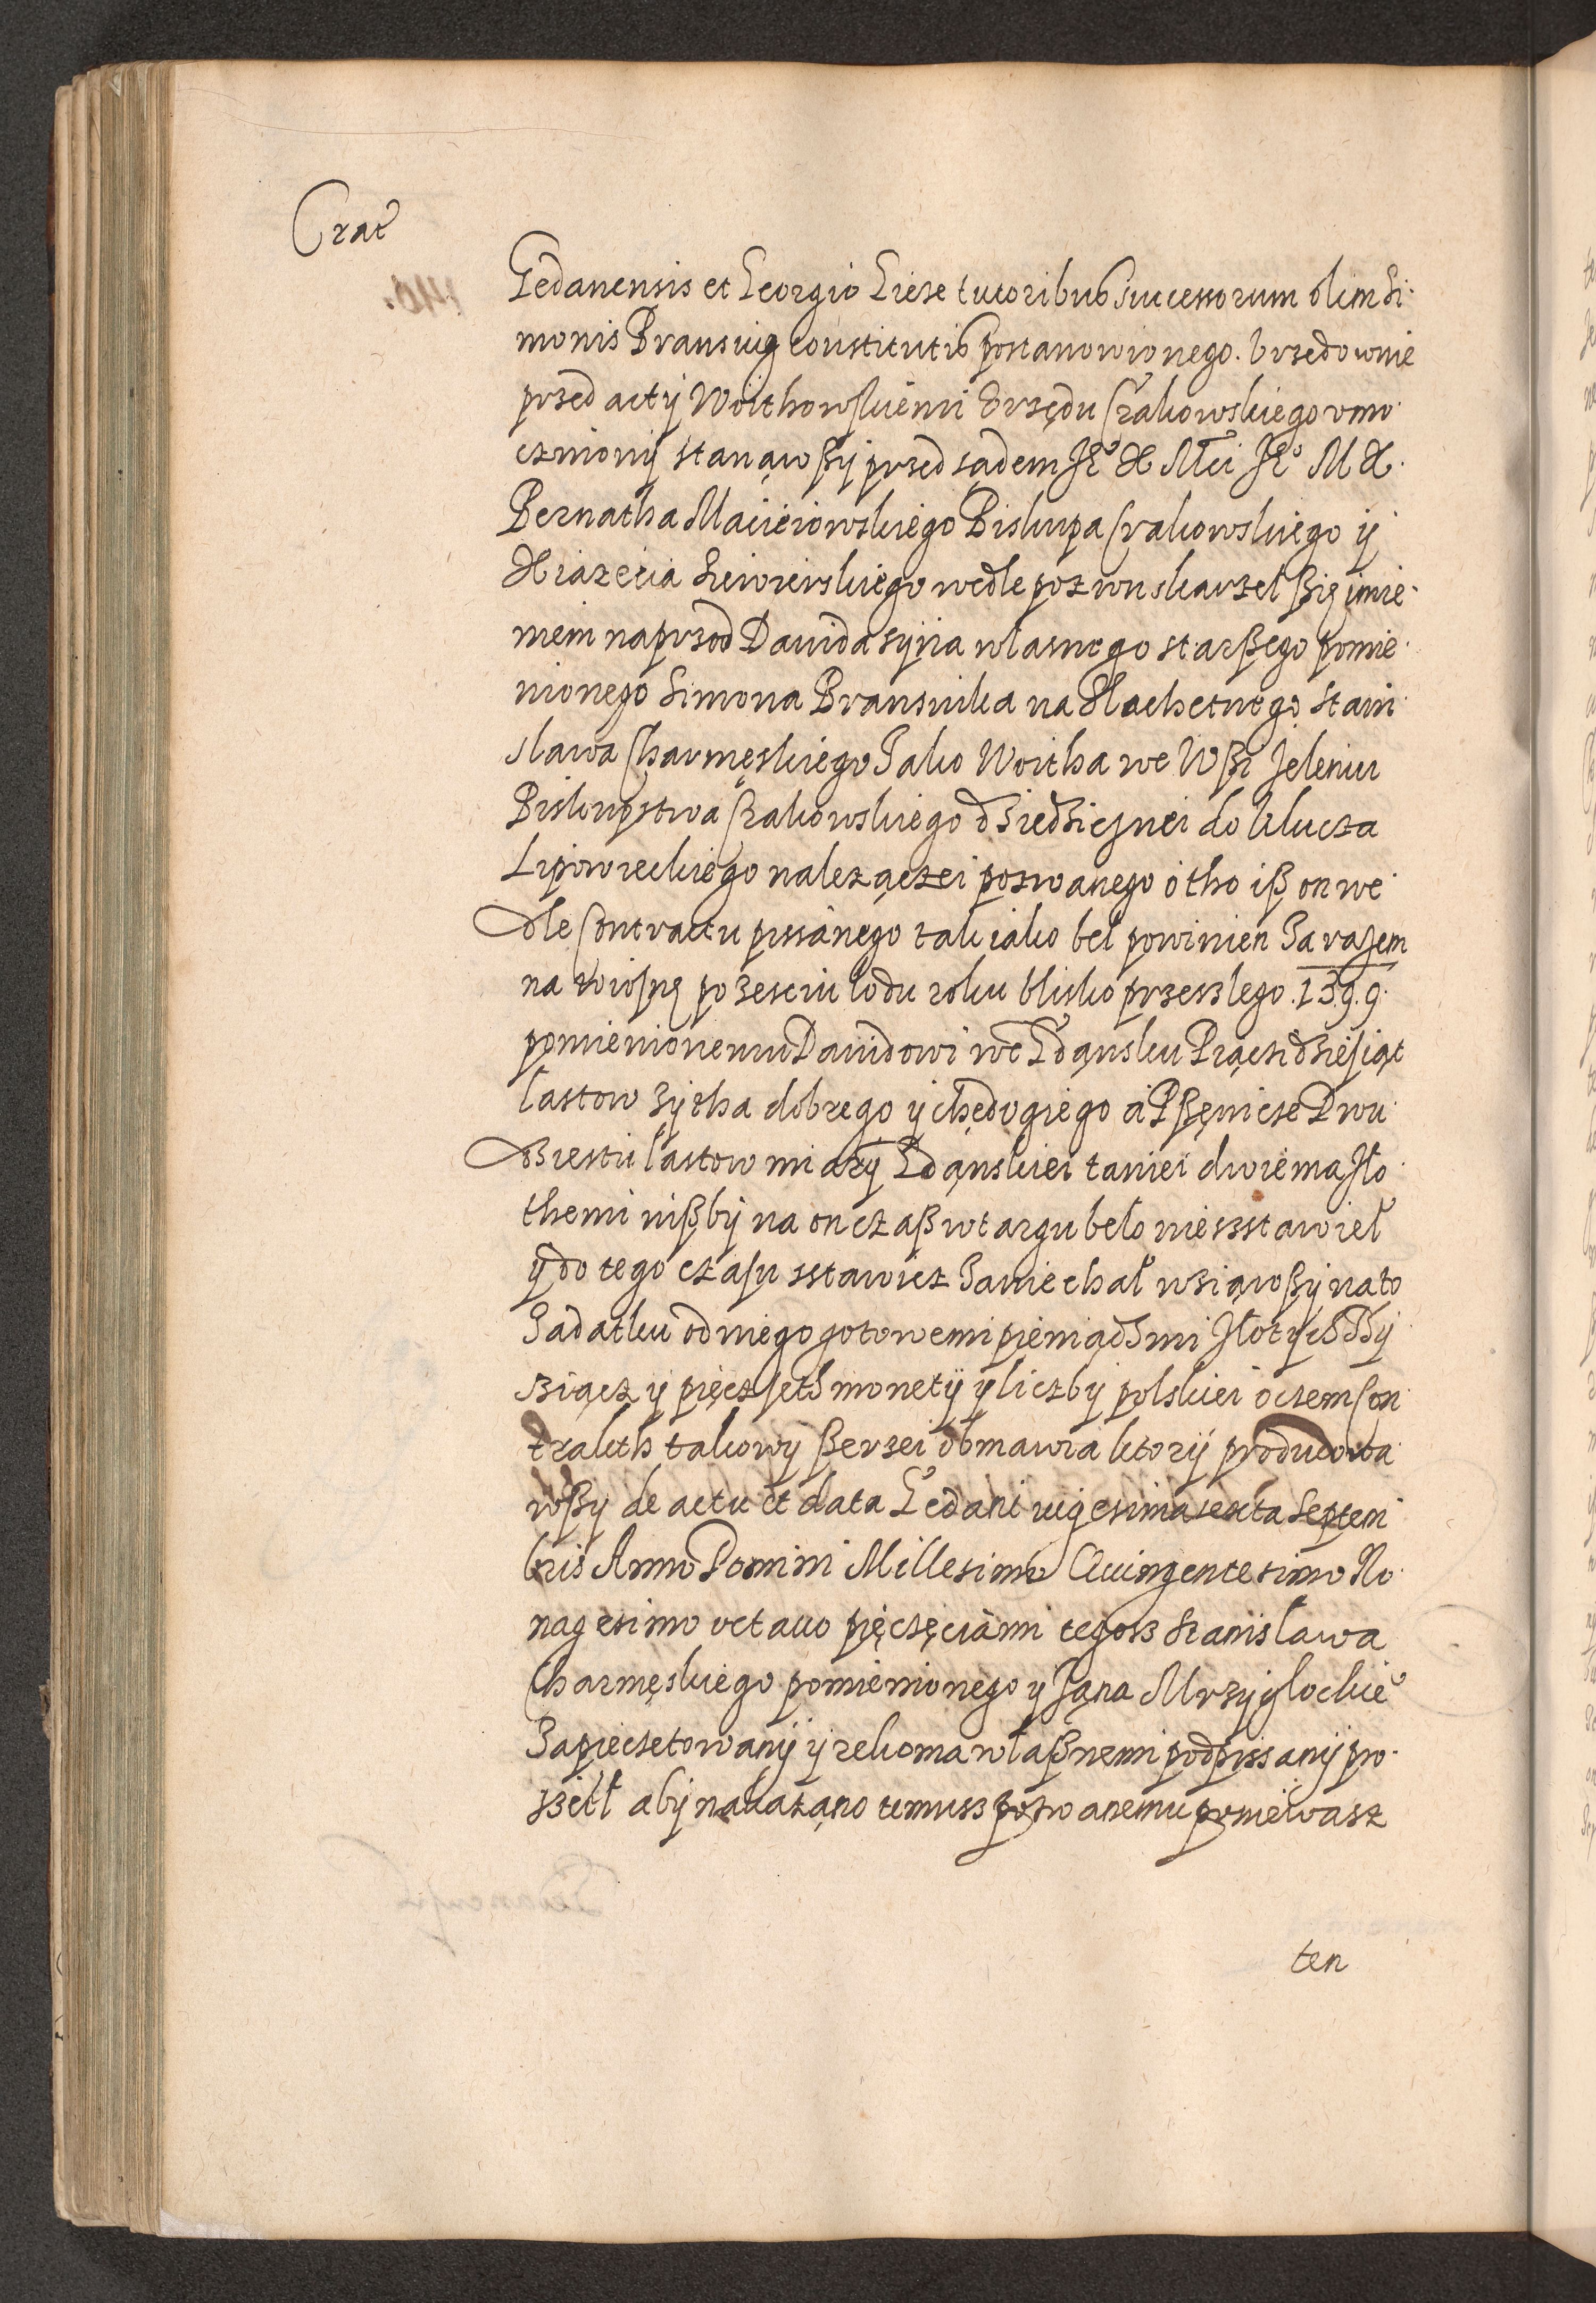 Crac
Gedanensis et Georgio Giese tutoribus Successorum olim Si
monis Bransuig constitutis postanowionego. Vrzedownie
przed acty Woithowskiemi Vrzędu Crakowskiego vmo
czniony stanąwßy przed sądem Je° X Mći Je° M X.
Bernatha Macieiowskiego Biskupa Crakowskiego y
Xiazecia Siewierskiego wedle pozwu skarzeł ßię imie
niem naprzod Dawida syna własnego starßego pomie
nionego Simona Bransuika na Slachetnego Stani
sława Charmęskiego Jako Woitha we Wßi Jeleniu
Biskupstwa Crakowskiego dziedzicznei do klucza
Lipowieckiego nalezączei pozwanego o tho iß on we
dle Contractu pissanego tak iako beł powinien Zarazem
na wiosnę po zesciu lodu roku blisko przeszlego .1599.
pomienionemu Dawidowi we Gdąnsku Piączidziesiąt
lastow zytha dobrego y chędogiego a Pßenicze Dwu
dziestu lastow miary Gdąnskiei taniei dwiema zło
themi nißby na on czaß w targu beło nie zstawieł
y do tego czasu sstawicz Zaniechał wziąwßy na to
Zadatku od niego gotowemi pieniądzmi złotych Ty
ziącz y pięczseth monety y liczby polskiei o czem Con
trakth takowy ßerzei obmawia ktory producowa
wßy de actu et data Gedani uigesima sexta Septem
bris Anno Domini Millesimo Quingentesimo No
nagesimo octauo pięczęciami tegosz Stanisława
Charmęskiego pomienionego y Jąna Mrzygłockie°
Zapieczetowany y rekoma właßnemi podpissany pro
szeił aby nakazano temusz pozwanemu poniewasz
ten